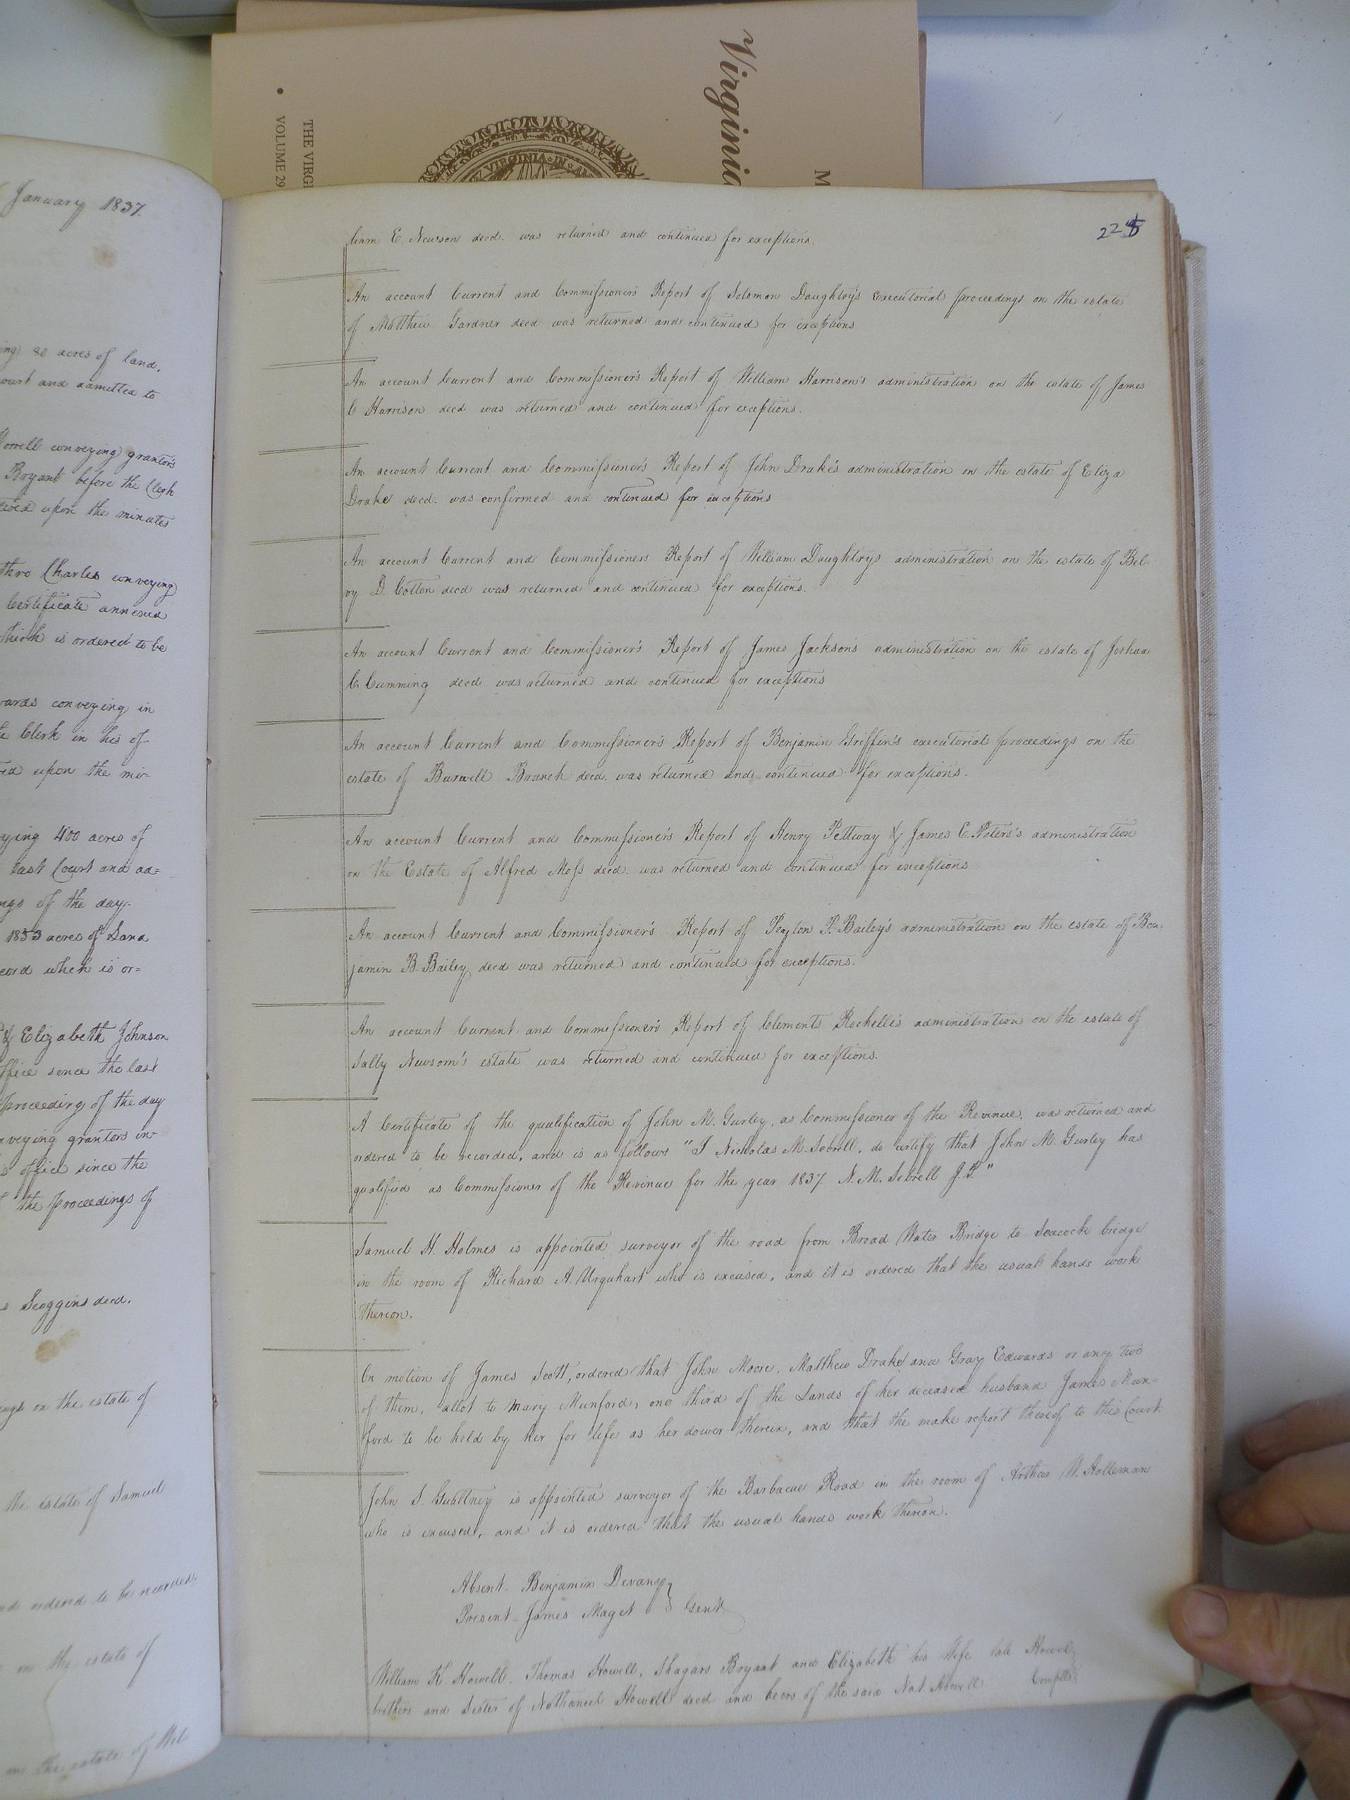 Virginia
M
THE VIRGI
VOLUME 29
VIRGINIA IN
January 1837.
80 acres of land,
court and admitted to
conveying grantors
Bryant before the Clerk
upon the minutes
Charles conveying
Certificate annexed
which is ordered to be
conveying in
Clerk in his of-
upon the mi-
400 acres of
last Court and ad=
of the day.
1853 acres of Land
which is or=
& Elizabeth Johnson
office since the last
proceeding of the day
grantors in-
office since the
the proceedings of
Scoggins decd.
on the estate of
the estate of Samuel
ordered to be recorded
on the estate of
on the estate of Wil-
225
liam E. Newsom decd. was returned and continued for exceptions.
An account Current and Commissioner's Report of Solomon Daughtry's executorial proceedings on the estate
of Matthew Gardner decd was returned and continued for exceptions
An account Current and Commissioner's Report of William Harrison's administration on the estate of James
C Harrison decd was returned and continued for exceptions.
An account Current and Commissioner's Report of John Drake's administration on the estate of Eliza
Drake decd. was confirmed and continued for exceptions
An account Current and Commissioners Report of William Daughtrys administration on the estate of Bel-
vy D. Cotton decd was returned and continued for exceptions.
An account Current and Commissioner's Report of James Jacksons administration on the estate of Joshua
C. Cumming decd was returned and continued for exceptions
An account Current and Commissioner's Report of Benjamin Griffin's executorial proceedings on the
estate of Burwell Branch decd. was returned and continued for exceptions.
An account Current and Commissioner's Report of Henry Pettway & James E. Peters's administration
on the Estate of Alfred Moss decd. was returned and continued for exceptions
An account Current and Commissioner's Report of Peyton P. Bailey's administration on the estate of Ben-
jamin B. Bailey decd was returned and continued for exceptions.
An account Current and Commissioner's Report of Clements Rochelle's administration on the estate of
Sally Newsom's estate was returned and continued for exceptions.
A Certificate of the qualification of John M. Gurley, as Commissioner of the Revenue, was returned and
ordered to be recorded, and is as follows "I Nicholas M. Sebrell, do certify that John M. Gurley has
qualified as Commissioner of the Revenue for the year 1837 N. M. Sebrell J.P."
Samuel H. Holmes is appointed surveyor of the road from Broad Water Bridge to Seacock bridge
in the room of Richard A Urquhart who is excused, and it is ordered that the usual hands work
thereon.
On motion of James Scott, ordered that John Moore, Matthew Drake and Gray Edwards or any two
of them, allot to Mary Munford, one third of the Lands of her deceased husband James Mun-
ford to be held by her for life as her dower therein, and that the make report thereof to this Court
John S. Gwaltney is appointed surveyor of the Barbacue Road in the room of Arthur W. Holleman
who is excused, and it is ordered that the usual hands work thereon.
Absent. Benjamin Devany
Present James Maget } Gent
William K. Howell, Thomas Howell, Bryant and Elizabeth his Wife late Howell
brothers and Sister of Nathaniel Howell decd and heirs of the said Nat. Howell Complts